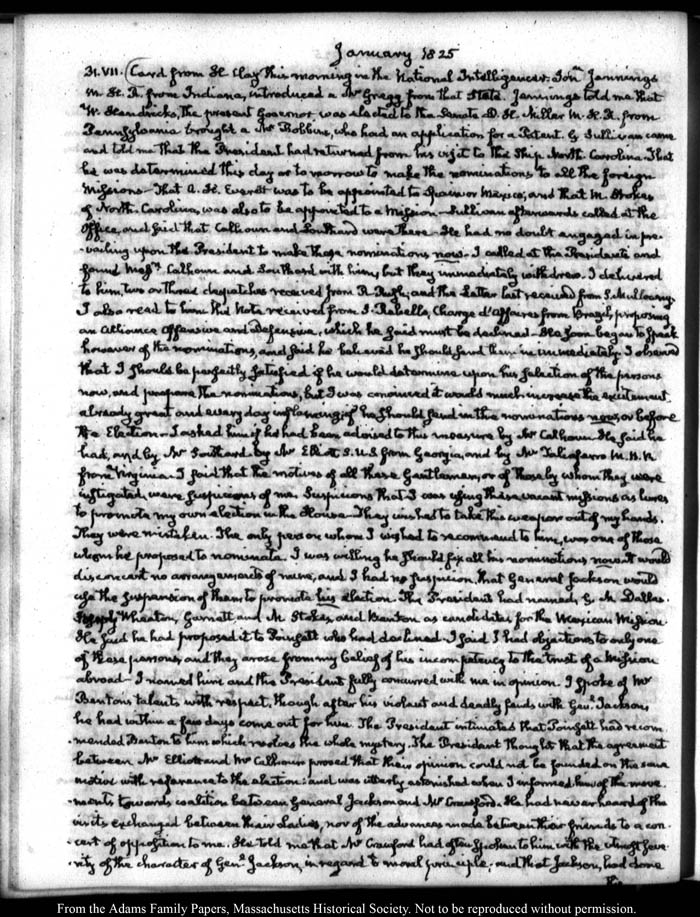 January 1825
31. VII. Card from H. Clay this morning in the National Intelligencer. Jonn Jennings
M. H. R. from Indiana, introduced a Mr Gregg from that State. Jennings told me that
W. Hendricks, the present Governor, was elected to the Senate. D. H. Miller M. H. R. from
Pennsylvania brought a Mr Robbins, who had an application for a Patent. G. Sullivan came
and told me that the President had returned from his visit to the Ship North Carolina. That
he was determined this day or to morrow to make the nominations to all the foreign
Missions—That A. H. Everett was to be appointed to Spain or Mexico; and that M. Stokes
of North-Carolina, was also to be appointed to a Mission—Sullivan afterwards called at the
Office, and said that Calhoun and Southard were there. He had no doubt engaged in pre-
-vailing upon the President to make these nominations now. I called at the Presidents and
found Messrs Calhoun and Southard with him, but they immediately withdrew. I delivered
to him, two or three dispatches received from R. Rush; and the Letter last received from
I also read to him the Note received from J. Rebello, Chargé d'Affaires from Brazil, proposing
an Alliance Offensive and Defensive, which he said must be declined. He soon began to speak
however of the nominations, and said he believed he should send them in immediately. I observed
that I should be perfectly satisfied if he would determine upon his selection of the persons
now, and prepare the nominations, but I was convinced it would much increase the excitement
already great and every day inflaming if he should send in the nominations now, or before
the Election—I asked him if he had been advised to this measure by Mr Calhoun. He said he
had, and by Mr Southard by Mr Elliot S. U. S from Georgia, and by Mr Taliaferro M. H. R.
from Virginia. I said that the motives of all these Gentlemen, or of those by whom they were
instigated, were suspicions of me. Suspicions that I was using these vacant missions as lures
to promote my own election in the House—They wished to take this weapon out of my hands.
They were mistaken. The only person whom I wished to recommend to him, was one of those
whom he proposed to nominate. I was willing he should fix all his nominations now. It would
disconcert no arrangements of mine, and I had no suspicion, that General Jackson would
use the suspension of them, to promote his election. The President had named, G. M. Dallas.
Wheaton, Garnett and M. Stokes, and Benton as candidates for the Mexican Mission
He said he had proposed it to Poinsett who had declined. I said I had objections to only one
of these persons, and they arose from my belief of his incompetency to the trust of a Mission
abroad—I named him and the President fully concurred with me in opinion. I spoke of Mr
Benton's talents with respect, though after his violent and deadly feuds with Genl Jackson,
he had within a few days come out for him. The President intimates that Poinsett had recom-
-mended Benton to him which resolves the whole mystery. The President thought that the agreement
between Mr Elliot and Mr Calhoun proved that their opinion could not be founded on the same
motive with reference to the election: and was utterly astonished when I informed him of the move-
-ments towards coalition between General Jackson and Mr Crawford. He had never heard of the
visits exchanged between their Ladies, nor of the advances made between their friends to a con-
-cert of opposition to me. He told me that Mr Crawford had often spoken to him with the utmost seve-
-rity of the character of Genl Jackson, in regard to moral principle: and that Jackson, had done
From the Adams Family Papers, Massachusetts Historical Society. Not to be reproduced without permission.